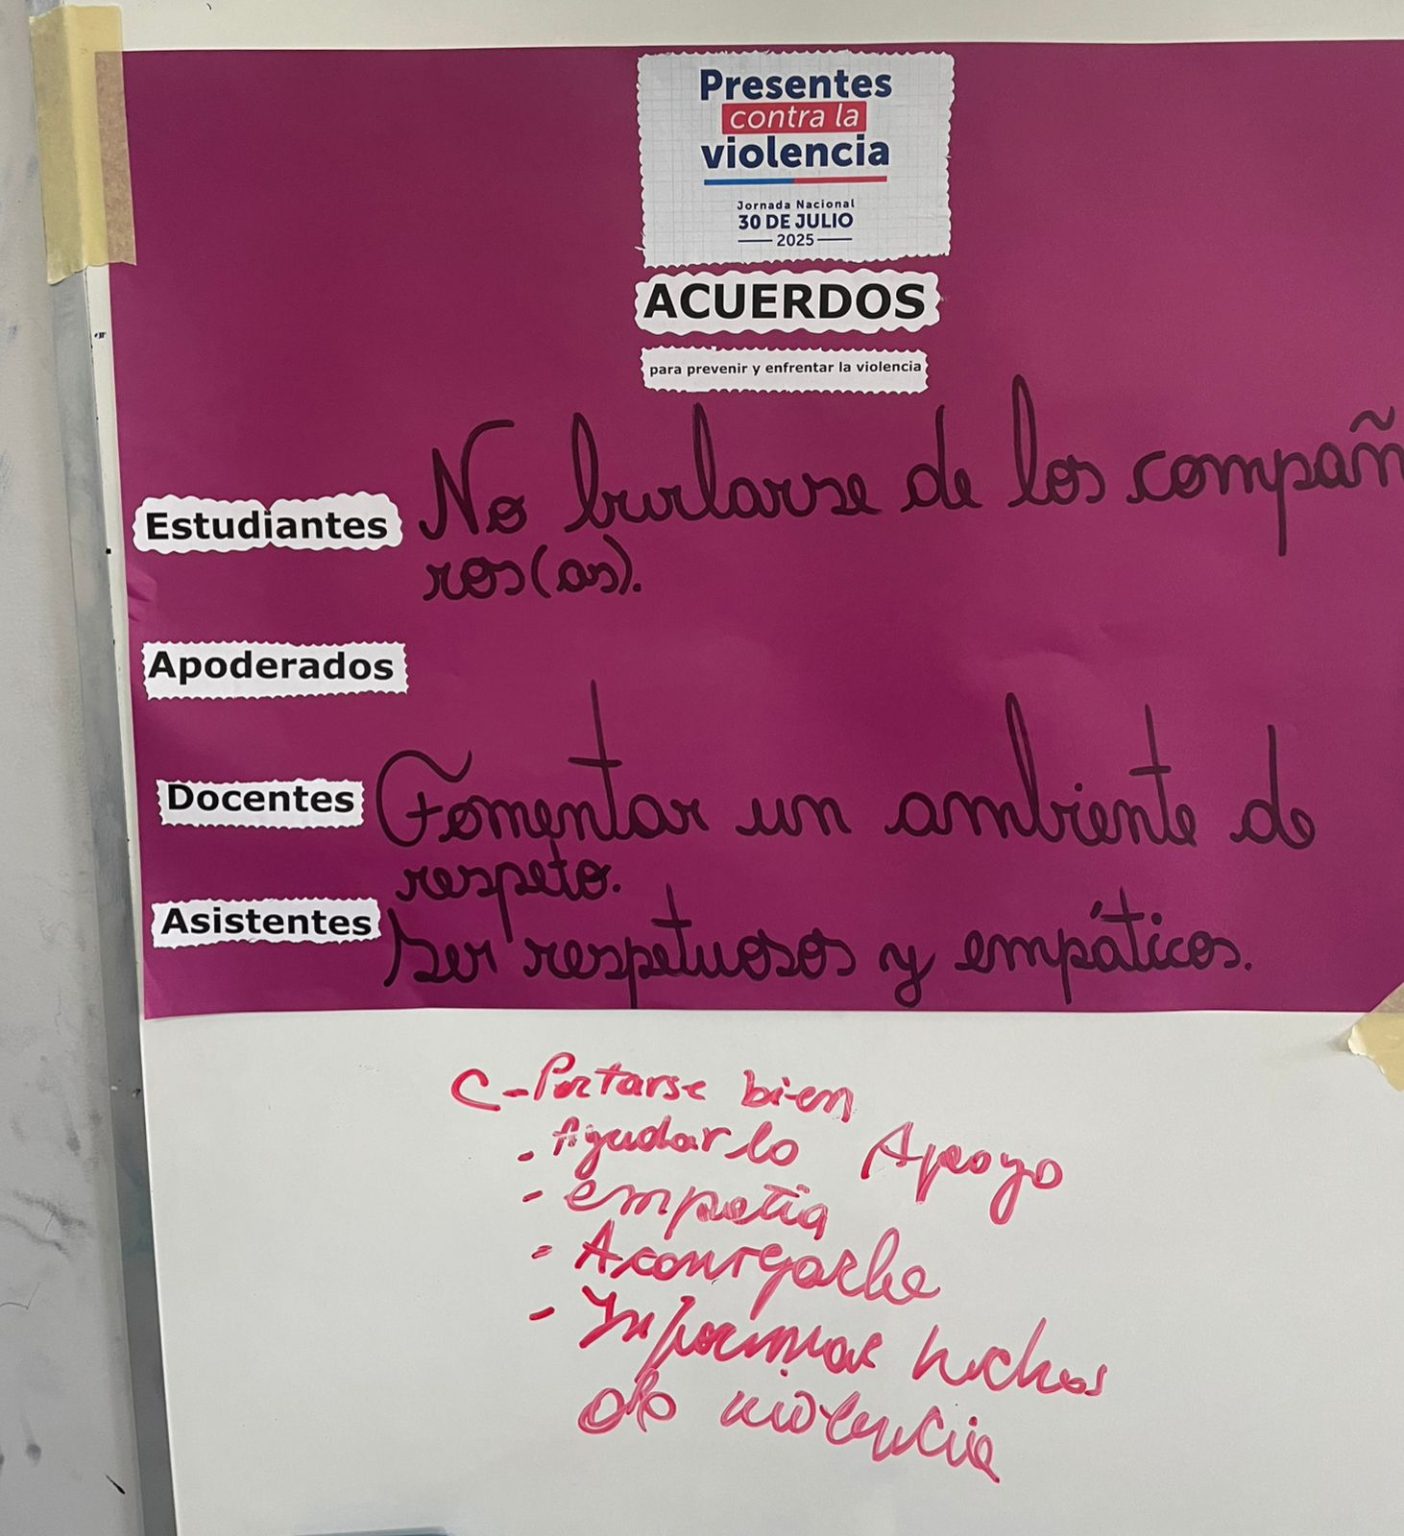 Presentes
contra la
violencia
Jornada Nacional
30 DE JULIO
2025
ACUERDOS
para prevenir y enfrentar la violencia
Estudiantes No burlarse de los compañ
ros(as).
Apoderados
Docentes Fomentar un ambiente de
respeto.
Asistentes Ser respetuosos y empáticos.
C - Portarse bien
- Ayudarlo Apoyo
- empatia
-
- Informar hechos
de violencia